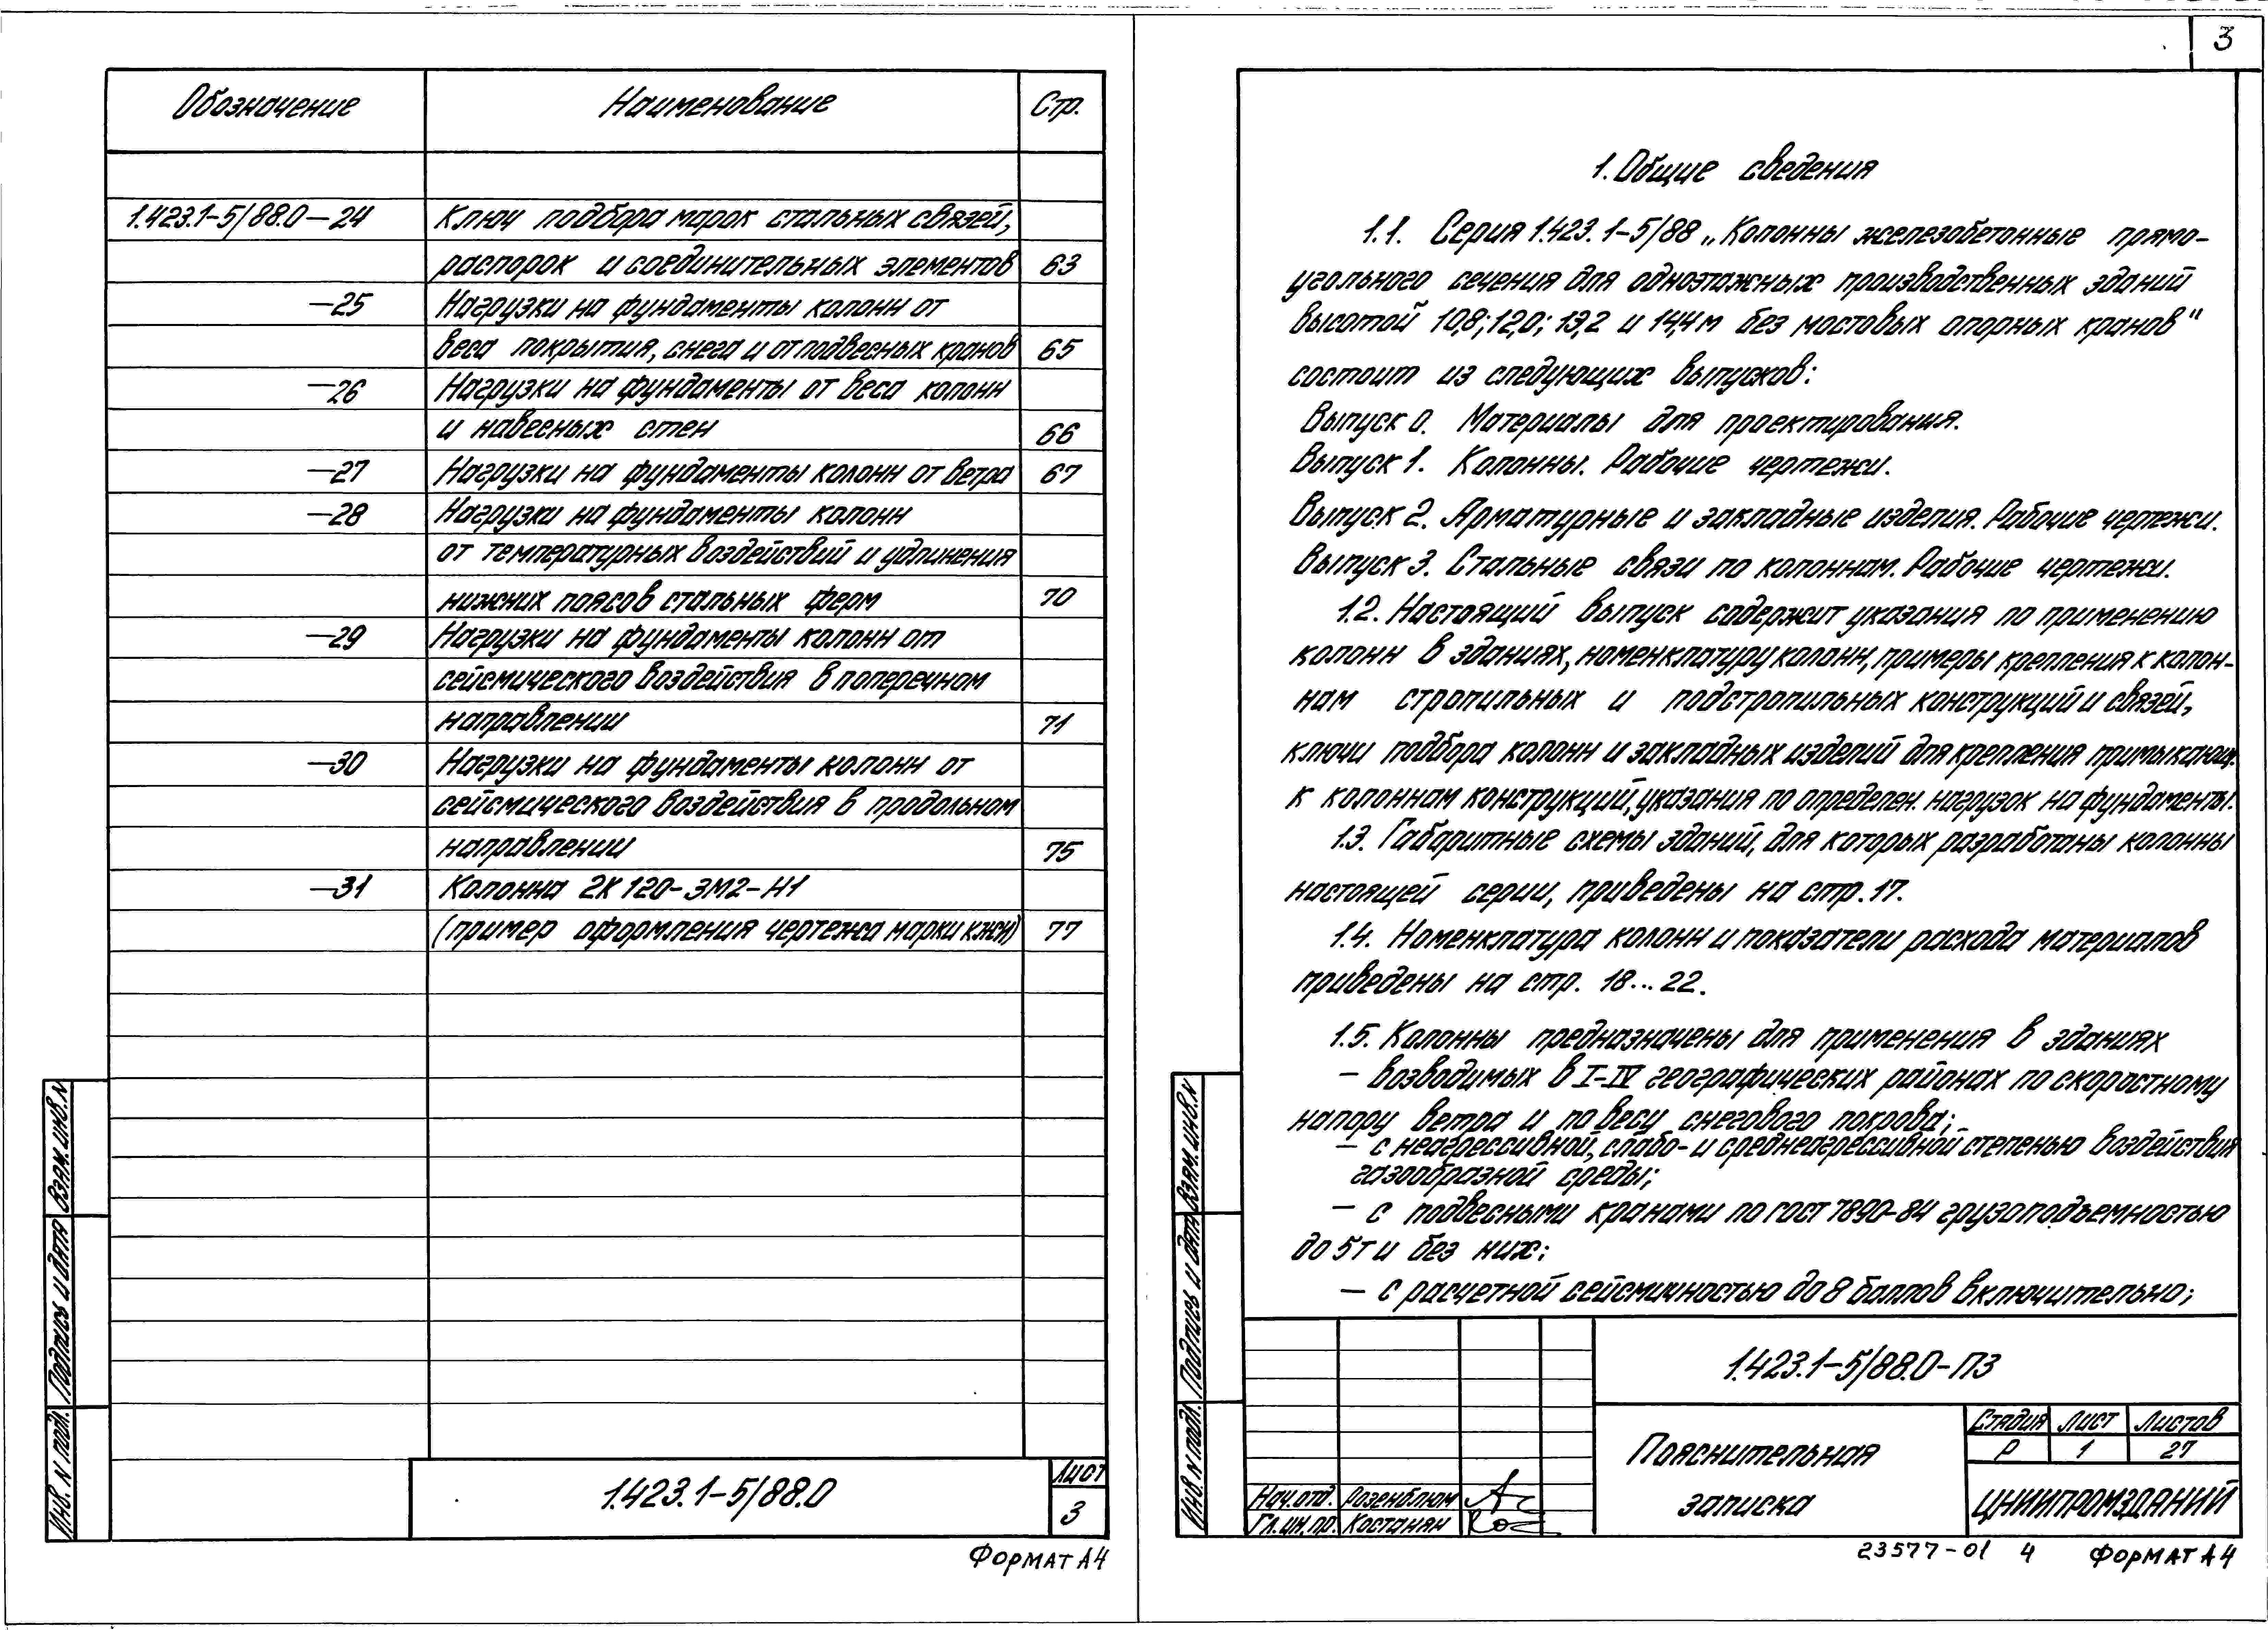 Обозначение Наименование Стр.
1.423.1-5/88.0-24 Ключ подбора марок стальных связей,
распорок и соединительных элементов 63
-25 Нагрузки на фундаменты колонн от
веса покрытия, снега и от подвесных кранов 65
-26 Нагрузки на фундаменты от веса колонн
и навесных стен 66
-27 Нагрузки на фундаменты колонн от ветра 67
-28 Нагрузки на фундаменты колонн
от температурных воздействий и удлинения
нижних поясов стальных ферм 70
-29 Нагрузки на фундаменты колонн от
сейсмического воздействия в поперечном
направлении 71
-30 Нагрузки на фундаменты колонн от
сейсмического воздействия в продольном
направлении 75
-31 Колонна 2К120-3М2-Н1
(пример оформления чертежа марки КЖИ) 77
Взам. инв. N
Подпись и дата
Инв. N подл.
1.423.1-5/88.0
Лист
3
Формат А4
3
1. Общие сведения
1.1. Серия 1.423.1-5/88 „Колонны железобетонные прямо-
угольного сечения для одноэтажных производственных зданий
высотой 10,8; 12,0; 13,2 и 14,4м без мостовых опорных кранов"
состоит из следующих выпусков:
Выпуск 0. Материалы для проектирования.
Выпуск 1. Колонны. Рабочие чертежи.
Выпуск 2. Арматурные и закладные изделия. Рабочие чертежи.
Выпуск 3. Стальные связи по колоннам. Рабочие чертежи.
1.2. Настоящий выпуск содержит указания по применению
колонн в зданиях, номенклатуру колонн, примеры крепления к колон-
нам стропильных и подстропильных конструкций и связей,
ключи подбора колонн и закладных изделий для крепления примыкающ.
к колоннам конструкций, указания по определен. нагрузок на фундаменты.
1.3. Габаритные схемы зданий, для которых разработаны колонны
настоящей серии, приведены на стр. 17.
1.4. Номенклатура колонн и показатели расхода материалов
приведены на стр. 18...22.
1.5. Колонны предназначены для применения в зданиях
- возводимых в I-IV географических районах по скоростному
напору ветра и по весу снегового покрова;
- с неагрессивной, слабо- и среднеагрессивной степенью воздействия
газообразной среды;
- с подвесными кранами по ГОСТ 7890-84 грузоподъемностью
до 5т и без них;
- с расчетной сейсмичностью до 8 баллов включительно;
Взам. инв. N
Подпись и дата
Инв. N подл.
1.423.1-5/88.0-ПЗ
Стадия Лист Листов
Р 1 27
Пояснительная
записка
ЦНИИПРОМЗДАНИЙ
Нач. отд. Розенблюм
Гл. ин. пр. Костанян
23577-01 4 Формат А4